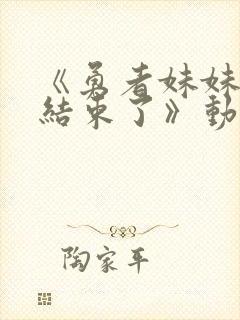 《勇者妹妹
結束了》動
陶家平